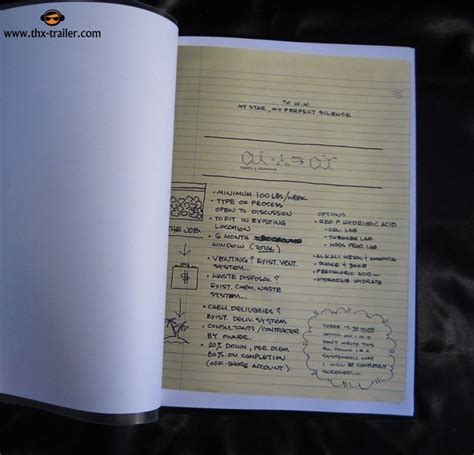 www.thx-trailer.com
TO W.W.
MY STAR, MY PERFECT SILENCE
• MINIMUM 100 LBS/WEEK
• TYPE OF PROCESS
OPEN TO DISCUSSION
• TO FIT IN EXISTING
LOCATION
• 6 MONTH
WINDOW (TOTAL)
THE JOB:
• VENTING? EXIST. VENT.
SYSTEM...
• WASTE DISPOSAL?
EXIST. CHEM. WASTE
SYSTEM...
$
• CHEM. DELIVERIES?
EXIST. DELIV. SYSTEM
• CONSULTANTS/CONTRACTOR
BY OWNER.
• 20% DOWN, PER DIEM
80% ON COMPLETION
(OFF-SHORE ACCOUNT).
OPTIONS
• RED P, HYDRIODIC ACID
LAB
LAB
LAB
• ALKALI METAL & AMMONIA
• SHAKE & BAKE
• PERCHLORIC ACID...
• HYDRAZINE HYDRATE
THERE IS
DON'T WRITE THIS
ALL DOWN IN A
SYSTEMATIC WAY
I WILL BE COMPLETELY
SCREWED...